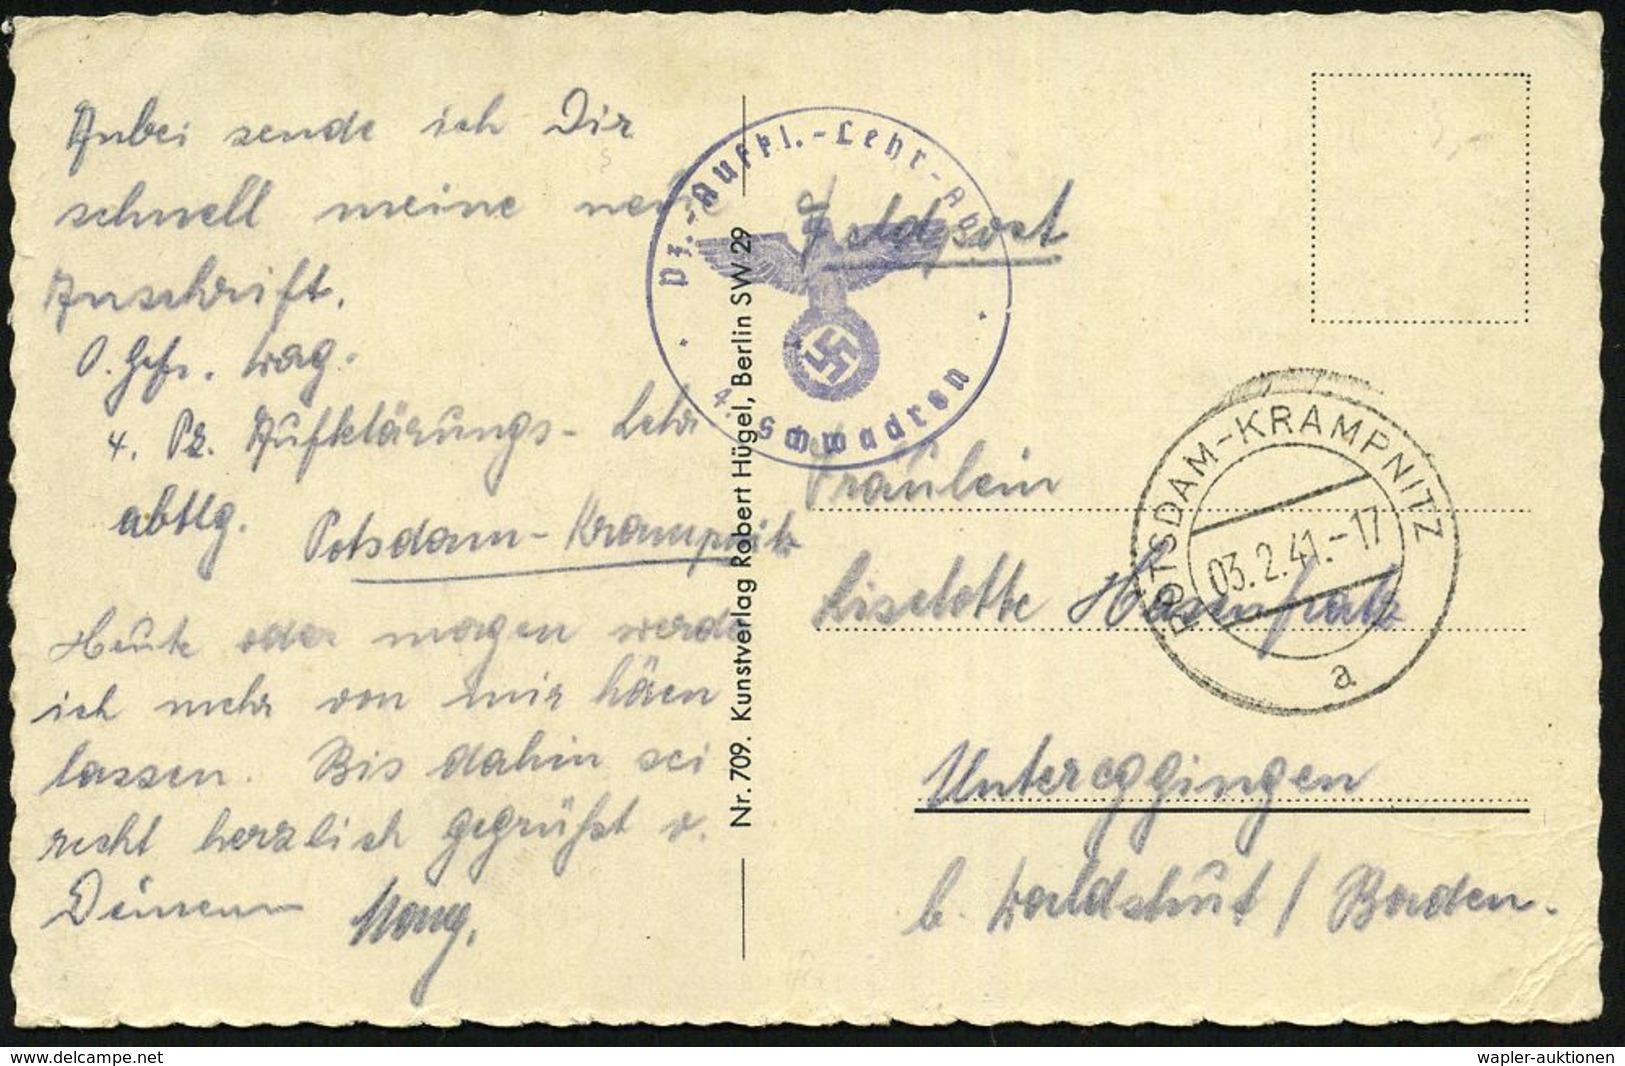 Anbei sende ich Dir
schnell meine neue
Anschrift.
O. Gefr. Wag.
4. Pz. Aufklärungs-Lehr
abtlg. Potsdam-Krampnitz
Heute oder morgen werde
ich mehr von mir hören
lassen. Bis dahin sei
recht herzlich gegrüßt v.
Deinem
Nr. 709. Kunstverlag Robert Hügel, Berlin SW 29
Pz.-Aufkl.-Lehr-Abt.
4. Schwadron
Feldpost
POTSDAM-KRAMPNITZ
03.2.41.-17
a
Fräulein
Liselotte Hasenfratz
Untereggingen
b. Waldshut / Baden.
delcampe.net
wapler-auktionen